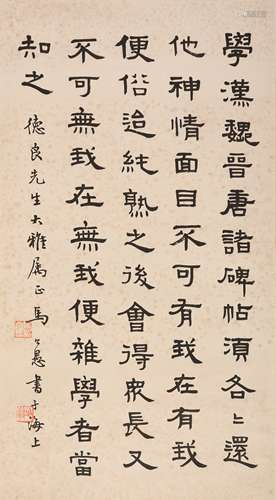 學漢魏晉唐諸碑帖須各〻還
他神情面目不可有我在有我
便俗迨純熟之後會得眾長又
不可無我在無我便雜學者當
知之
德良先生大雅屬正馬公愚書于海上